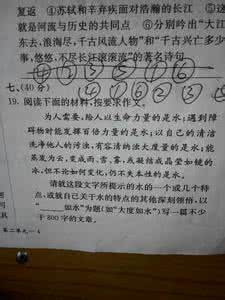 复返 ④苏轼和辛弃疾面对浩瀚的长江 ⑤这
就是河流与历史的共同点 ⑥分别吟出“大江
东去,浪淘尽,千古风流人物”和“千古兴亡多少
事,悠悠,不尽长江滚滚流”的著名诗句
④②③⑤①⑥
七、(40分) ④①⑥②③
19. 阅读下面的材料,按要求作文。
为人需要,给人以生命力量的是水;遇到障
碍物时能发挥百倍力量的是水;以自己的清洁
洗净他人的污浊,有容清纳浊大度量的是水;能
蒸发为云,变成雨、雪、雾,或凝结成晶莹如镜的
冰,但不论如何变化,仍不失本性的是水。
请就这段文字所提示的水的一个或几个特
点,或就自己关于水的特点的其他深刻领悟,以
“______如水”为题(如“大度如水”)写一篇不少
于800字的文章。
第二单元—4